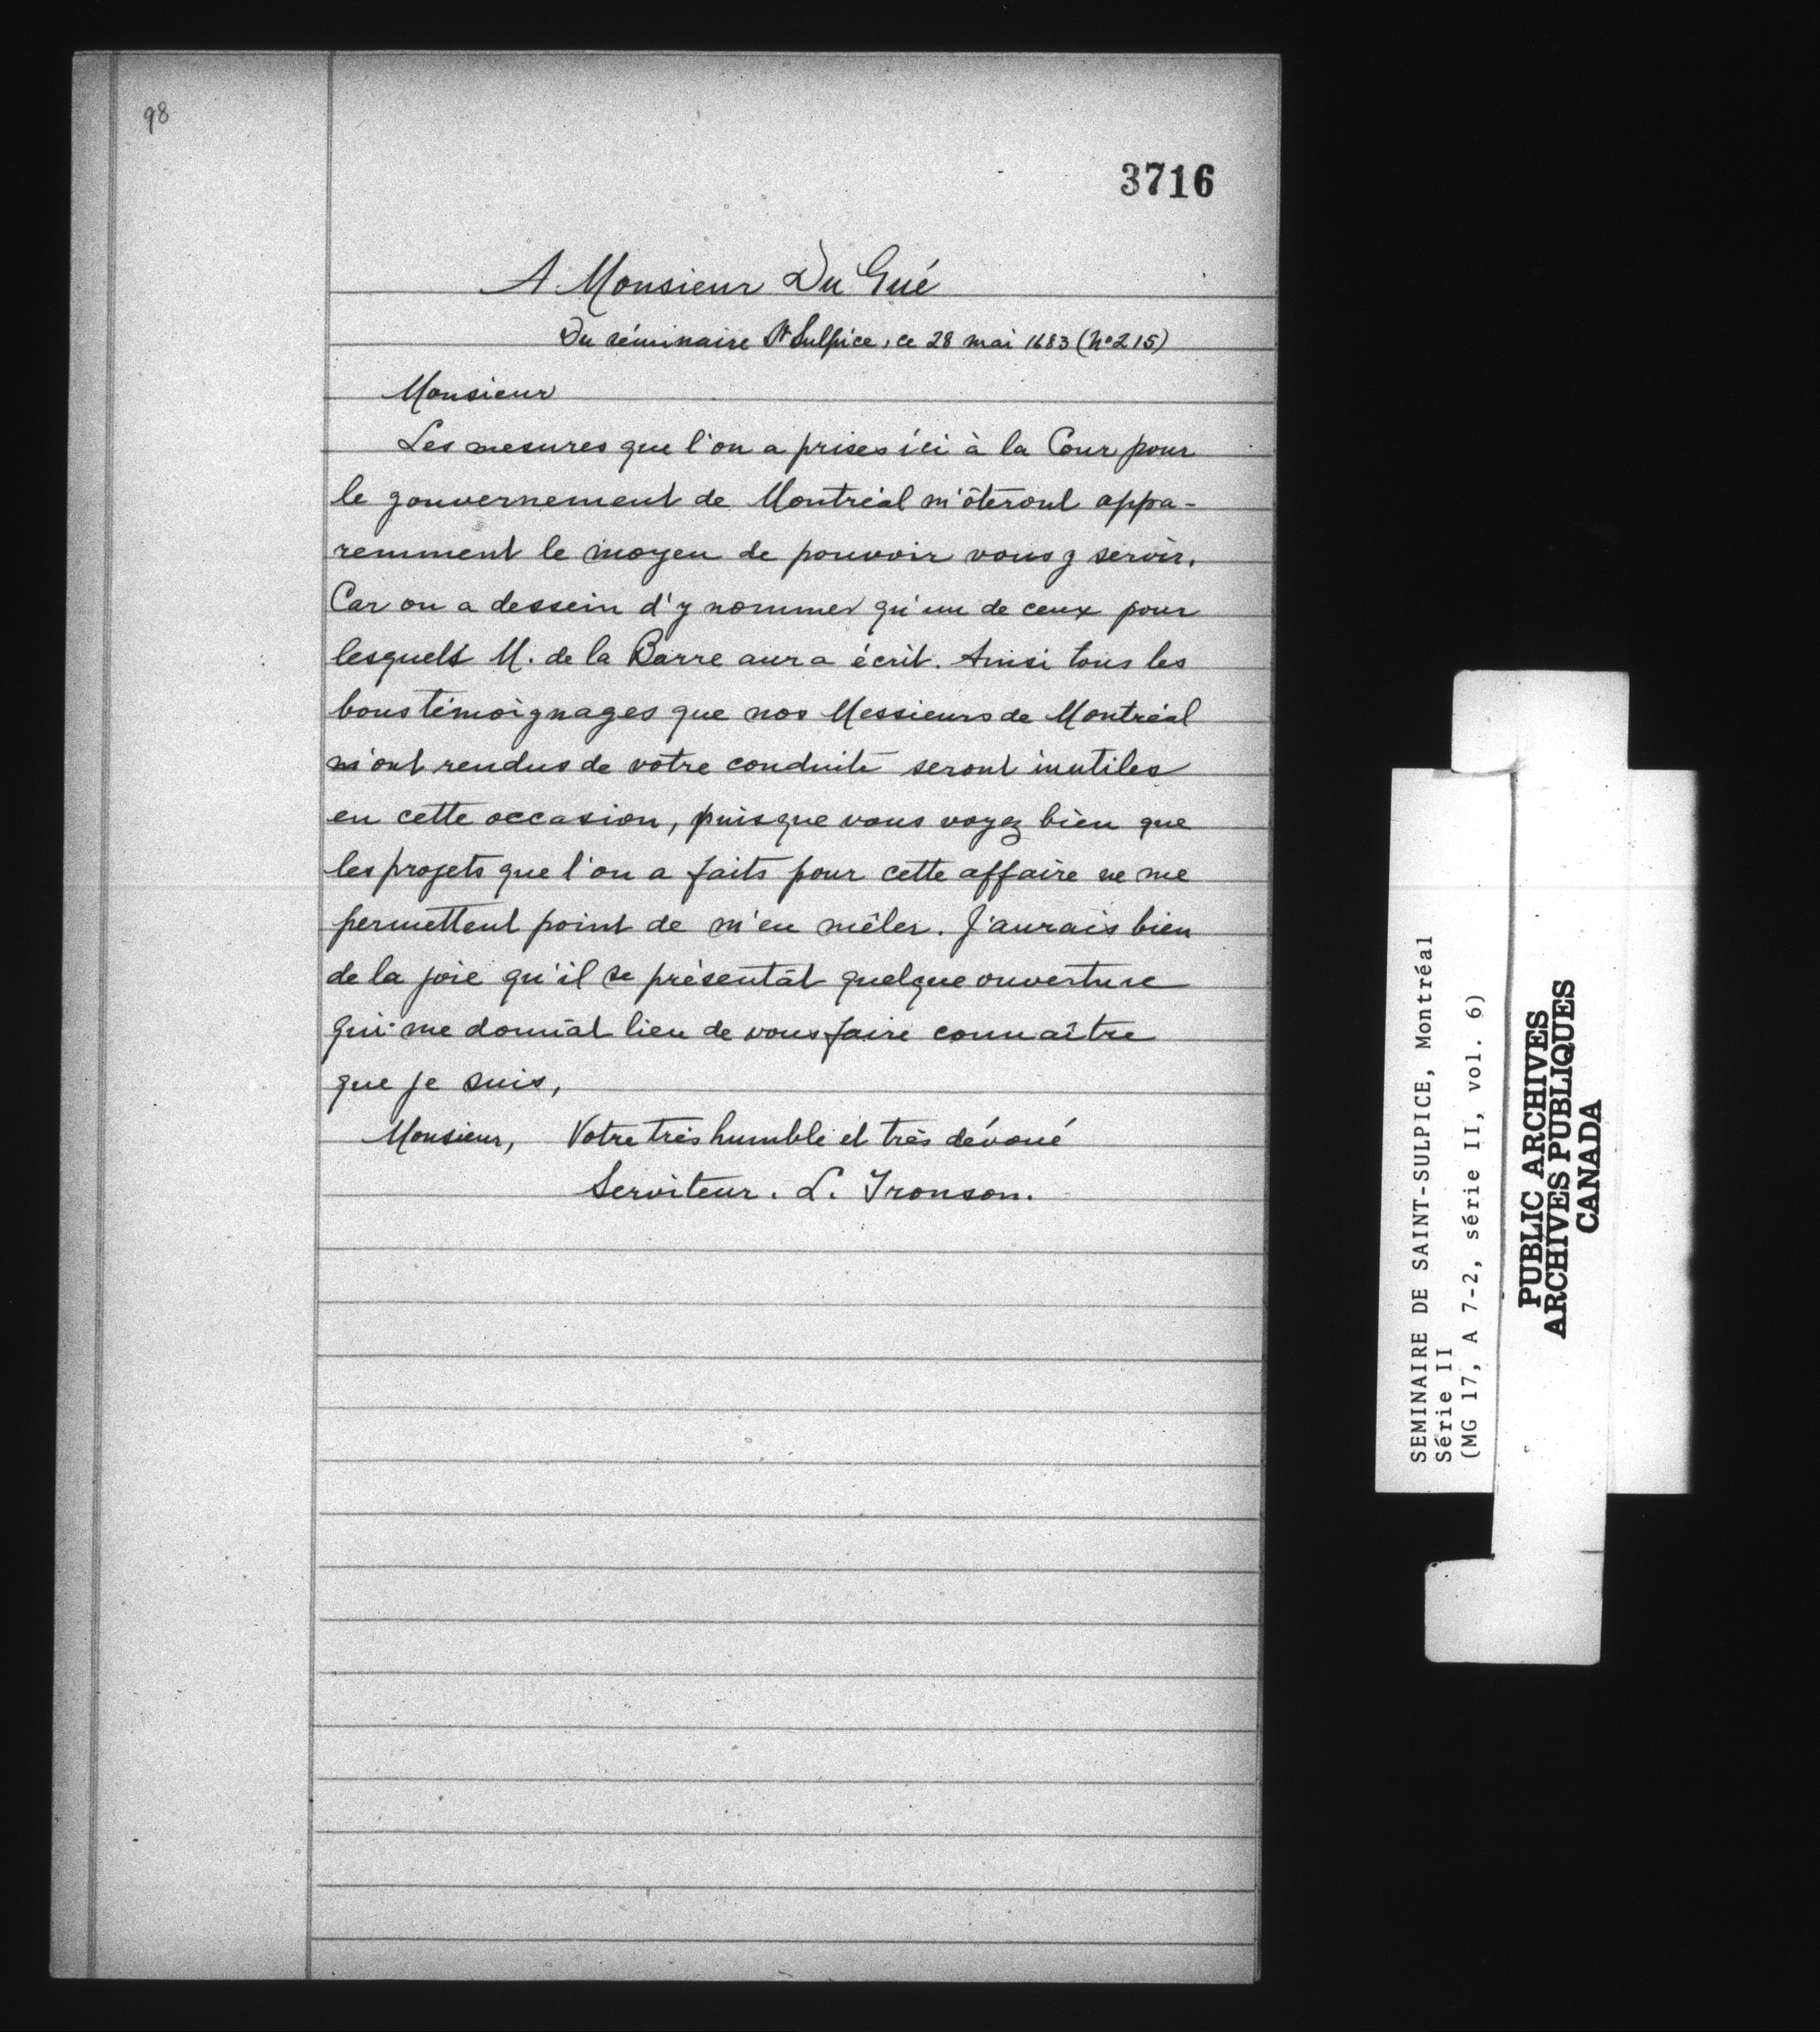 98
3716
A Monsieur Du Gué
Du séminaire St Sulpice, ce 28 mai 1683 (No 215)
Monsieur
Les mesures que l'on a prises ici à la Cour pour
le gouvernement de Montréal m'ôteront appa-
remment le moyen de pouvoir vous y servir.
Car on a dessein d'y nommer qu'un de ceux pour
lesquels M. de la Barre aura écrit. Ainsi tous les
bons témoignages que nos Messieurs de Montréal
m'ont rendus de votre conduite seront inutiles
en cette occasion, puisque vous voyez bien que
les projets que l'on a faits pour cette affaire ne me
permettent point de m'en mêler. J'aurais bien
de la joie qu'il se présentât quelque ouverture
qui me donnât lieu de vous faire connaître
que je suis,
Monsieur, Votre très humble et très dévoué
Serviteur. L. Tronson.
SEMINAIRE DE SAINT-SULPICE, Montréal
Série II
(MG 17, A 7-2, série II, vol. 6)
PUBLIC ARCHIVES
ARCHIVES PUBLIQUES
CANADA